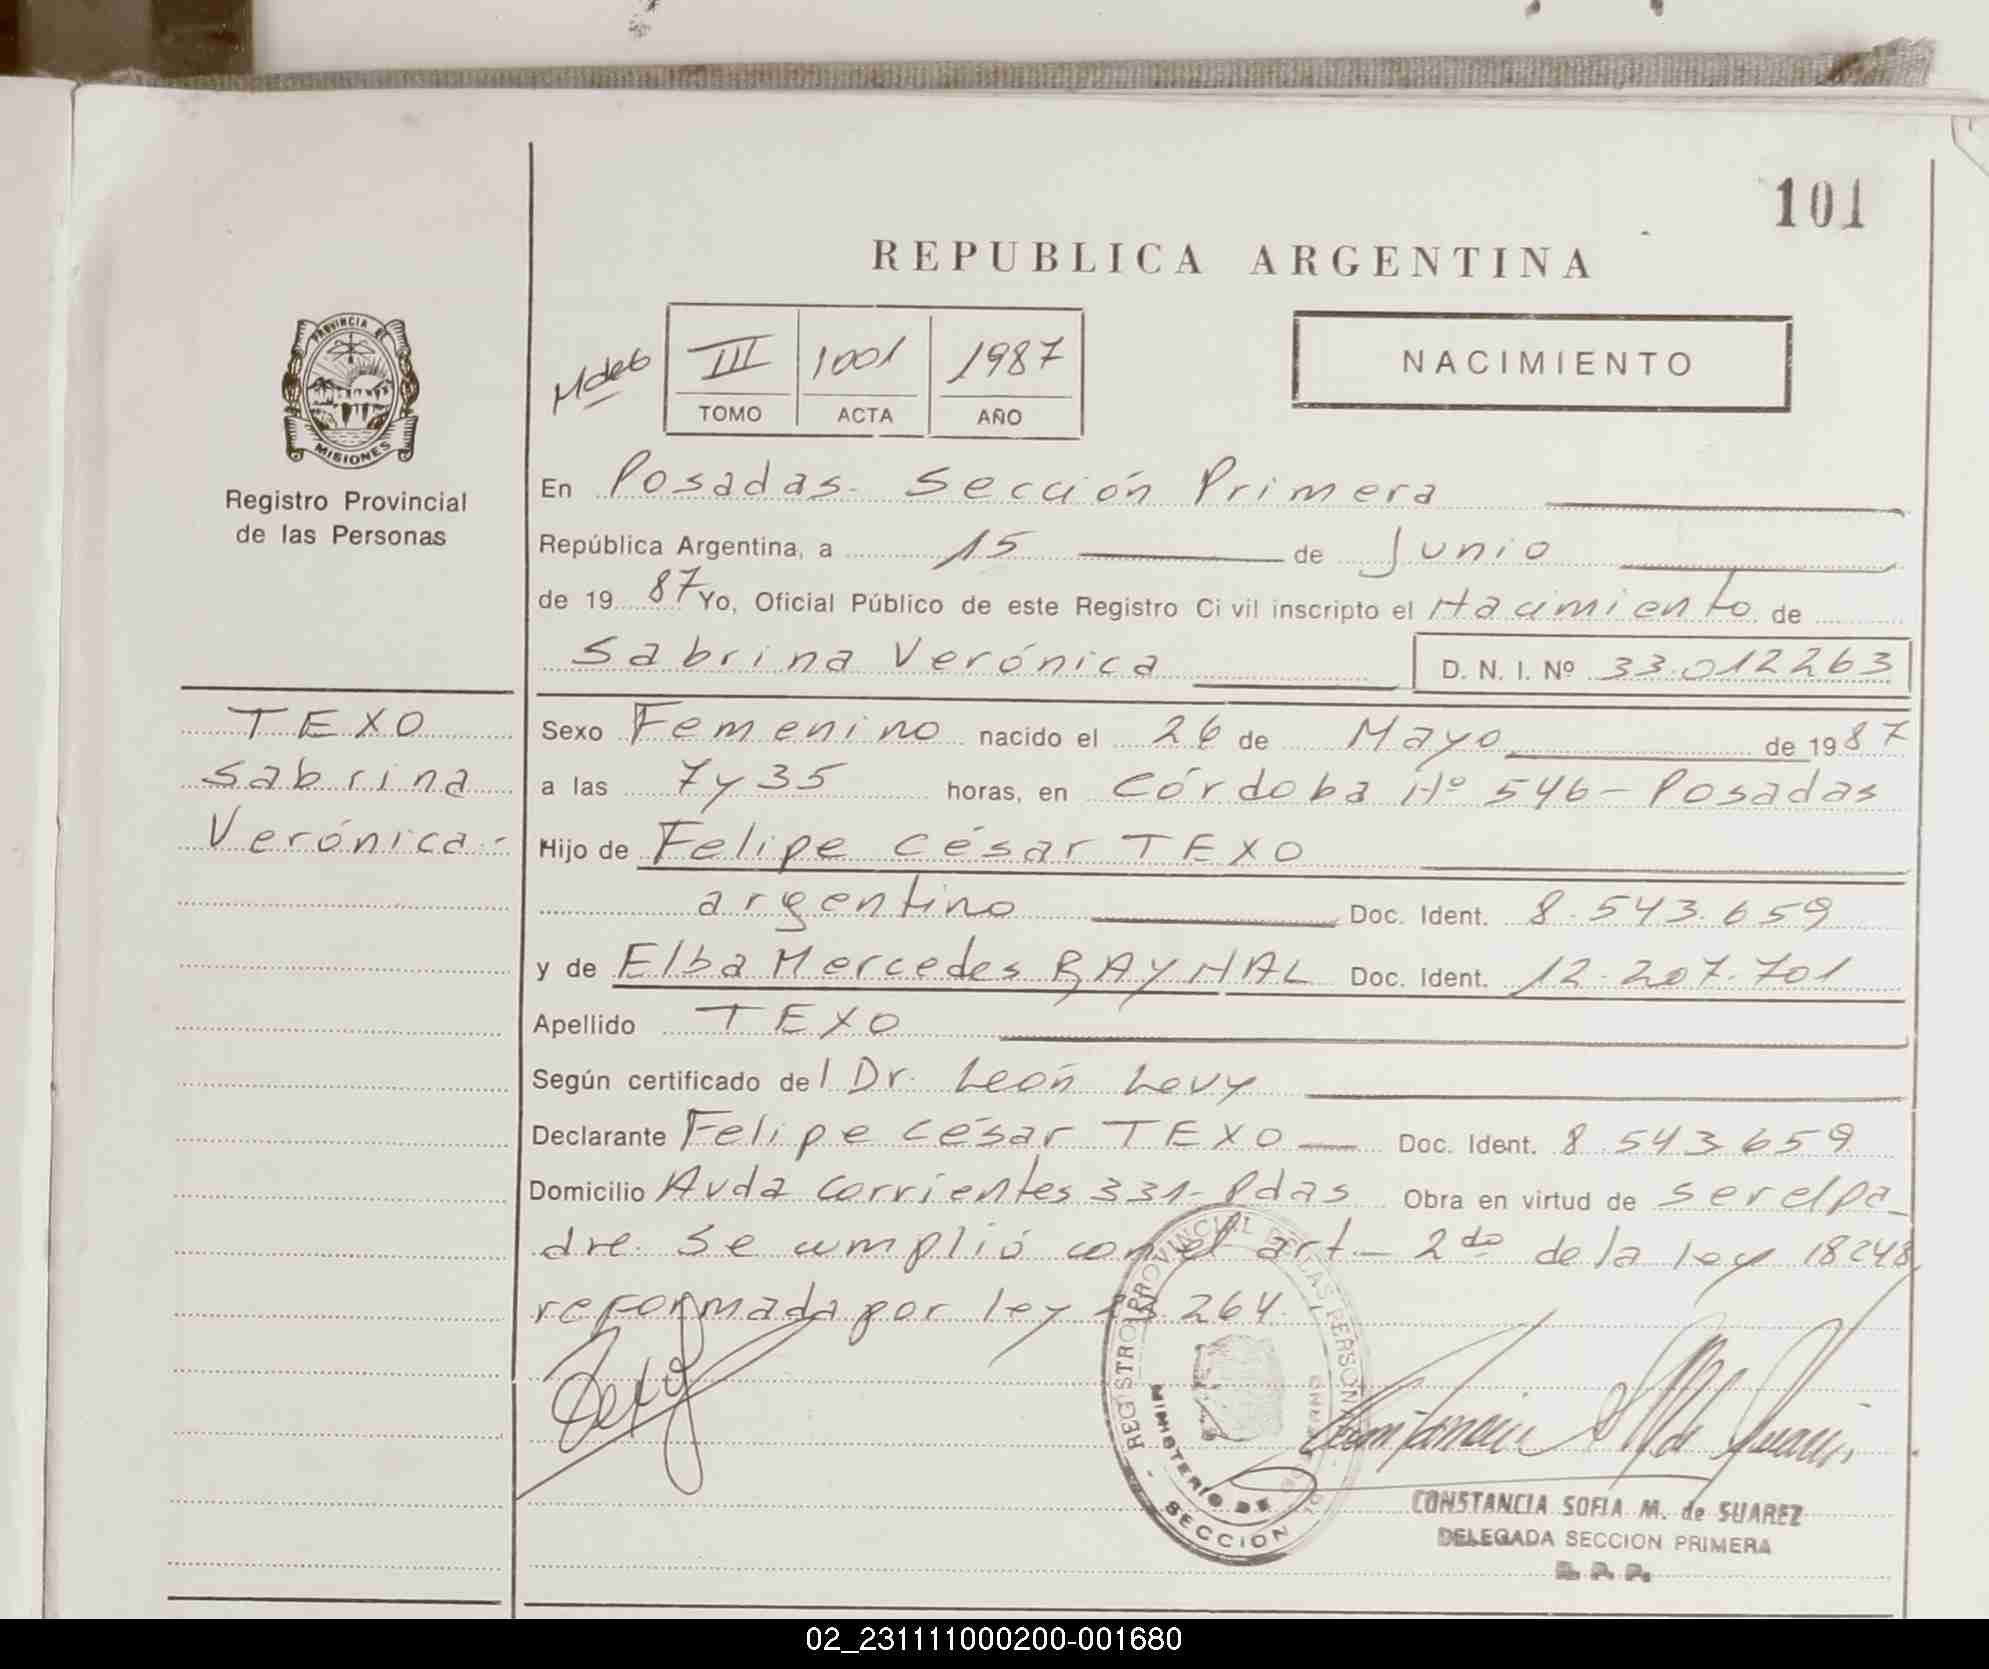 101
REPUBLICA ARGENTINA
PROVINCIA DE
MISIONES
Registro Provincial
de las Personas
III 1001 1987
TOMO ACTA AÑO
NACIMIENTO
En Posadas- Sección Primera
República Argentina, a 15 de Junio
de 19 87 Yo, Oficial Público de este Registro Civil inscripto el Nacimiento de
Sabrina Verónica D. N. I. Nº 33.012263
TEXO
Sabrina
Verónica-
Sexo Femenino nacido el 26 de Mayo de 1987
a las 7 y 35 horas, en Córdoba Nº 546- Posadas
Hijo de Felipe César TEXO
argentino Doc. Ident. 8.543.659
y de Elba Mercedes RAYNAL Doc. Ident. 12.207.701
Apellido TEXO
Según certificado del Dr. León Levy
Declarante Felipe César TEXO Doc. Ident. 8.543.659
Domicilio Avda Corrientes 331- Pdas Obra en virtud de ser el pa_
dre. Se cumplió con el art- 2do de la ley 18248
reformada por ley 23.264.
Texo
REGISTRO PROVINCIAL DE LAS PERSONAS
MINISTERIO DE
SECCION
CONSTANCIA SOFIA M. de SUAREZ
DELEGADA SECCION PRIMERA
R. P. P.
02_231111000200-001680